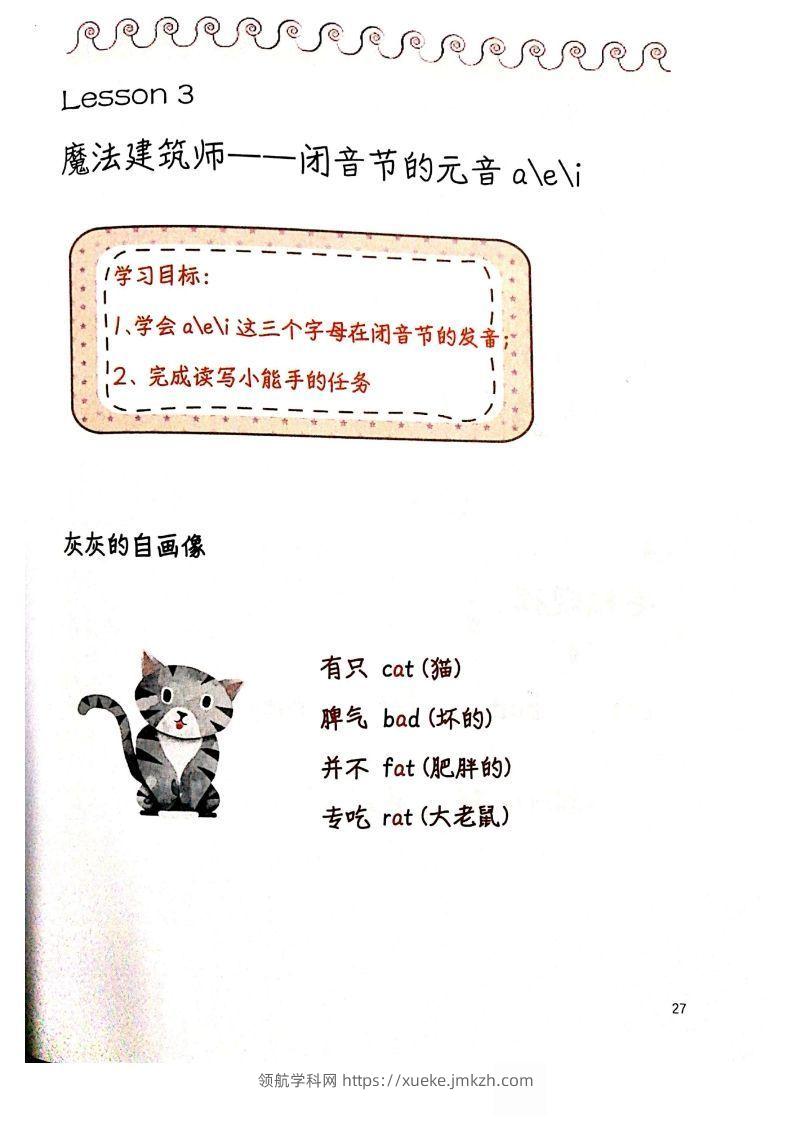 Lesson 3
魔法建筑师——闭音节的元音 a\e\i
学习目标：
1、学会 a\e\i 这三个字母在闭音节的发音；
2、完成读写小能手的任务
灰灰的自画像
有只 cat (猫)
脾气 bad (坏的)
并不 fat (肥胖的)
专吃 rat (大老鼠)
27
领航学科网 https://xueke.jmkzh.com